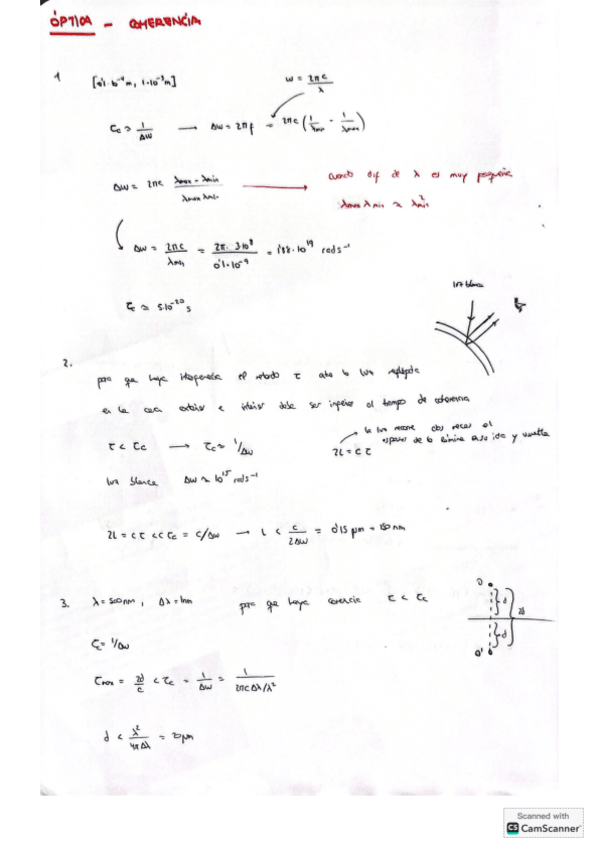 ÓPTICA - COHERENCIA
1 [0'1·10⁻⁹m, 1·10⁻³m] ω = 2πc/λ
τc ≈ 1/Δω → Δω = 2πf = 2πc (1/λmin - 1/λmax)
Δω = 2πc (λmax - λmin)/(λmax λmin) → cuando dif de λ es muy pequeña
λmax λmin ≈ λ²min
Δω = 2πc/λmin = 2π·3·10⁸/0'1·10⁻⁹ = 1'88·10¹⁹ rad s⁻¹
τc ≈ 5·10⁻²⁰ s
luz blanca
2.
para que haya interferencia el retardo τ entre la luz reflejada
en la cara exterior e interior debe ser inferior al tiempo de coherencia
τ < τc → τc ≈ 1/Δω
la luz recorre dos veces el
espesor de la lámina ida y vuelta
2L = cτ
luz blanca Δω ≈ 10¹⁵ rad s⁻¹
2L = cτ << cτc = c/Δω → L < c/2Δω = 0'15 μm = 150 nm
3. λ = 500nm, Δλ = 1nm para que haya coherencia τ < τc
O
d
2d
d
O'
τc = 1/Δω
τmax = 2d/c < τc = 1/Δω = 1/(2πcΔλ/λ²)
d < λ²/4πΔλ = 20μm
Scanned with
CS CamScanner